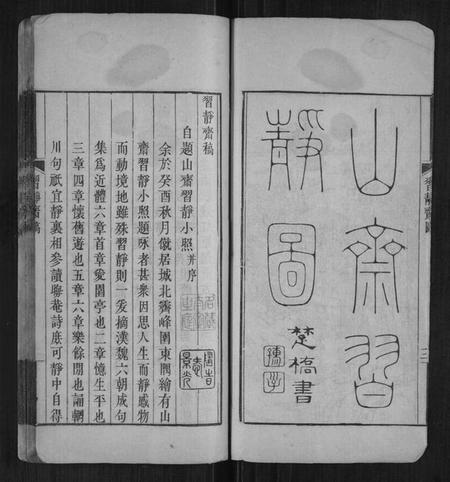 山齋習
靜圖
楚橋書
習靜齋圖
習靜齋稿
自題山齋習靜小照 并序
余於癸酉秋月僦居城北霽峰園東閣繪有山
齋習靜小照題咏者甚衆因思人生而靜感物
而動境地雖殊習靜則一爰摘漢魏六朝成句
集爲近體六章首章愛園亭也二章憶生平也
三章四章懷舊遊也五章六章樂餘閒也誦輞
川句祇宜靜裏相參讀聯菴詩底可靜中自得
習靜齋稿